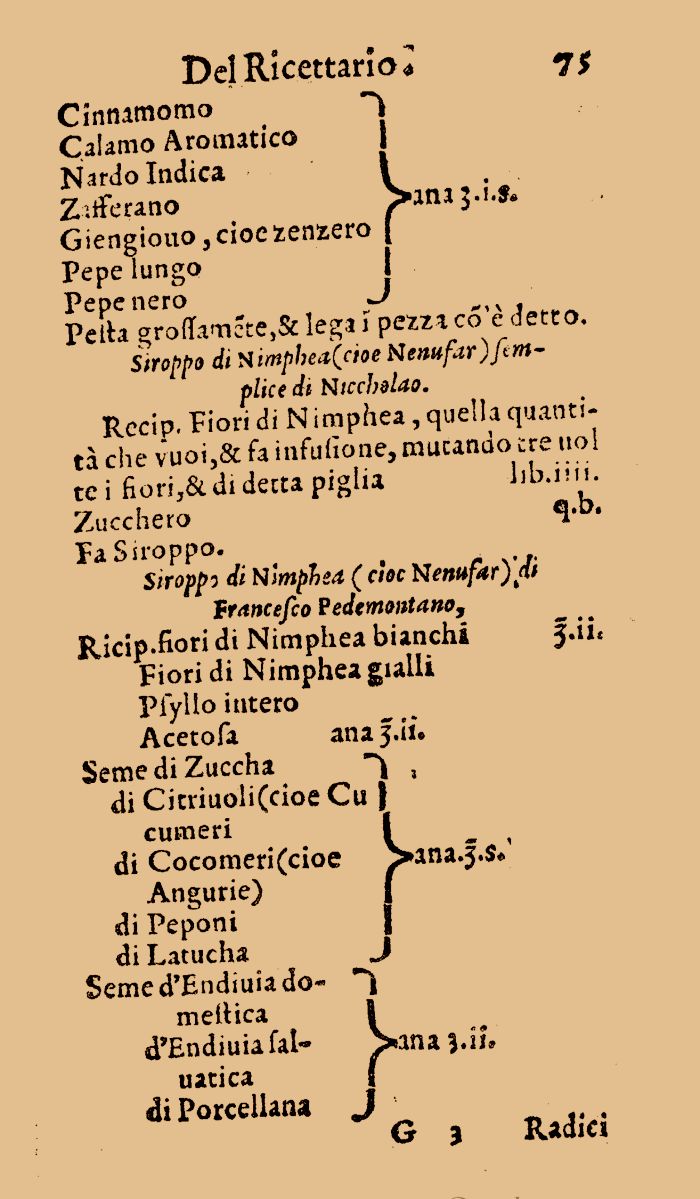 Del Ricettario.
75
Cinnamomo
Calamo Aromatico
Nardo Indica
Zafferano
Giengiouo, cioe zenzero
Pepe lungo
Pepe nero
ana ʒ.i.s.
Pesta grossamēte,& lega ī pezza cō'è detto.
Siroppo di Nimphea(cioe Nenufar)sem-
plice di Niccholao.
Recip. Fiori di Nimphea, quella quanti-
tà che vuoi,& fa infusione, mutando tre uol
te i fiori,& di detta piglia lib.iiii.
Zucchero q.b.
Fa Siroppo.
Siroppo di Nimphea (cioe Nenufar) di
Francesco Pedemontano,
Ricip.fiori di Nimphea bianchi ℥.ii.
Fiori di Nimphea gialli
Psyllo intero
Acetosa ana ℥.ii.
Seme di Zuccha
di Citriuoli(cioe Cu
cumeri
di Cocomeri(cioe
Angurie)
di Peponi
di Latucha
ana.℥.s.
Seme d'Endiuia do-
mestica
d'Endiuia sal-
uatica
di Porcellana
ana ʒ.ii.
G 3 Radici